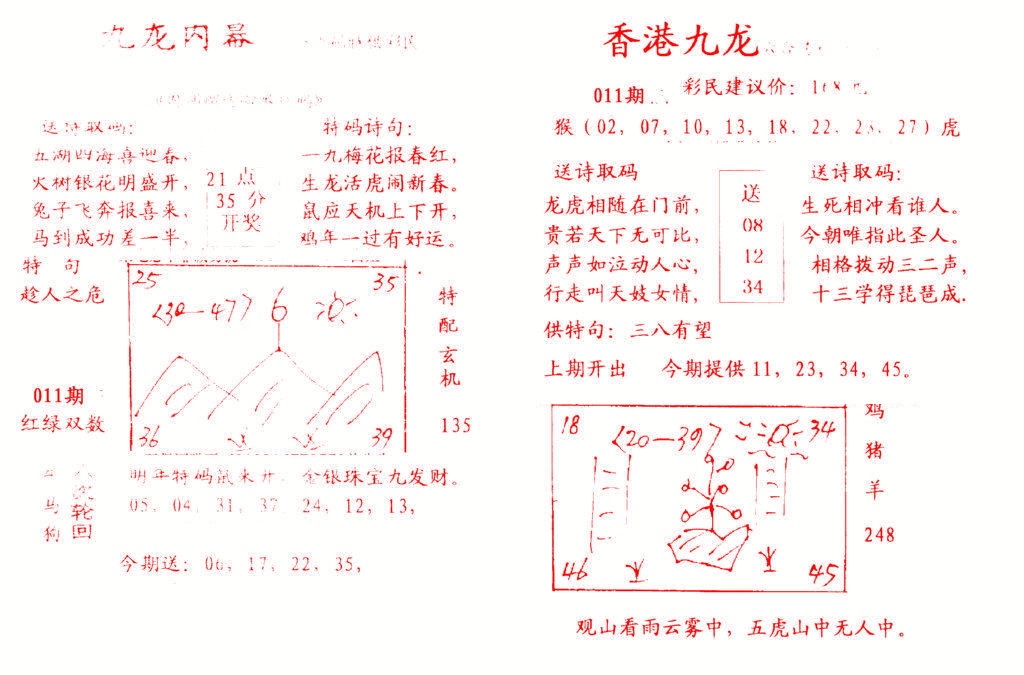 九龙内幕
送诗取码：
五湖四海喜迎春，
火树银花明盛开，
兔子飞奔报喜来，
马到成功差一半，
21 点
35 分
开奖
特码诗句：
一九梅花报春红，
生龙活虎闹新春。
鼠应天机上下开，
鸡年一过有好运。
特 句
趁人之危
011期
红绿双数
25
35
<30—477 6
36
39
特
配
玄
机
135
马
狗
轮
回
明年特码鼠来开，金银珠宝九发财。
05，04，31，37，24，12，13，
今期送：06，17，22，35，
香港九龙
011期
彩民建议价：168元
猴（02，07，10，13，18，22，23，27）虎
送诗取码
龙虎相随在门前，
贵若天下无可比，
声声如泣动人心，
行走叫天妓女情，
送
08
12
34
送诗取码：
生死相冲看谁人。
今朝唯指此圣人。
相格拨动三二声，
十三学得琵琶成.
供特句：三八有望
上期开出 今期提供 11，23，34，45。
18
<20—397
34
46
45
鸡
猪
羊
248
观山看雨云雾中，五虎山中无人中。